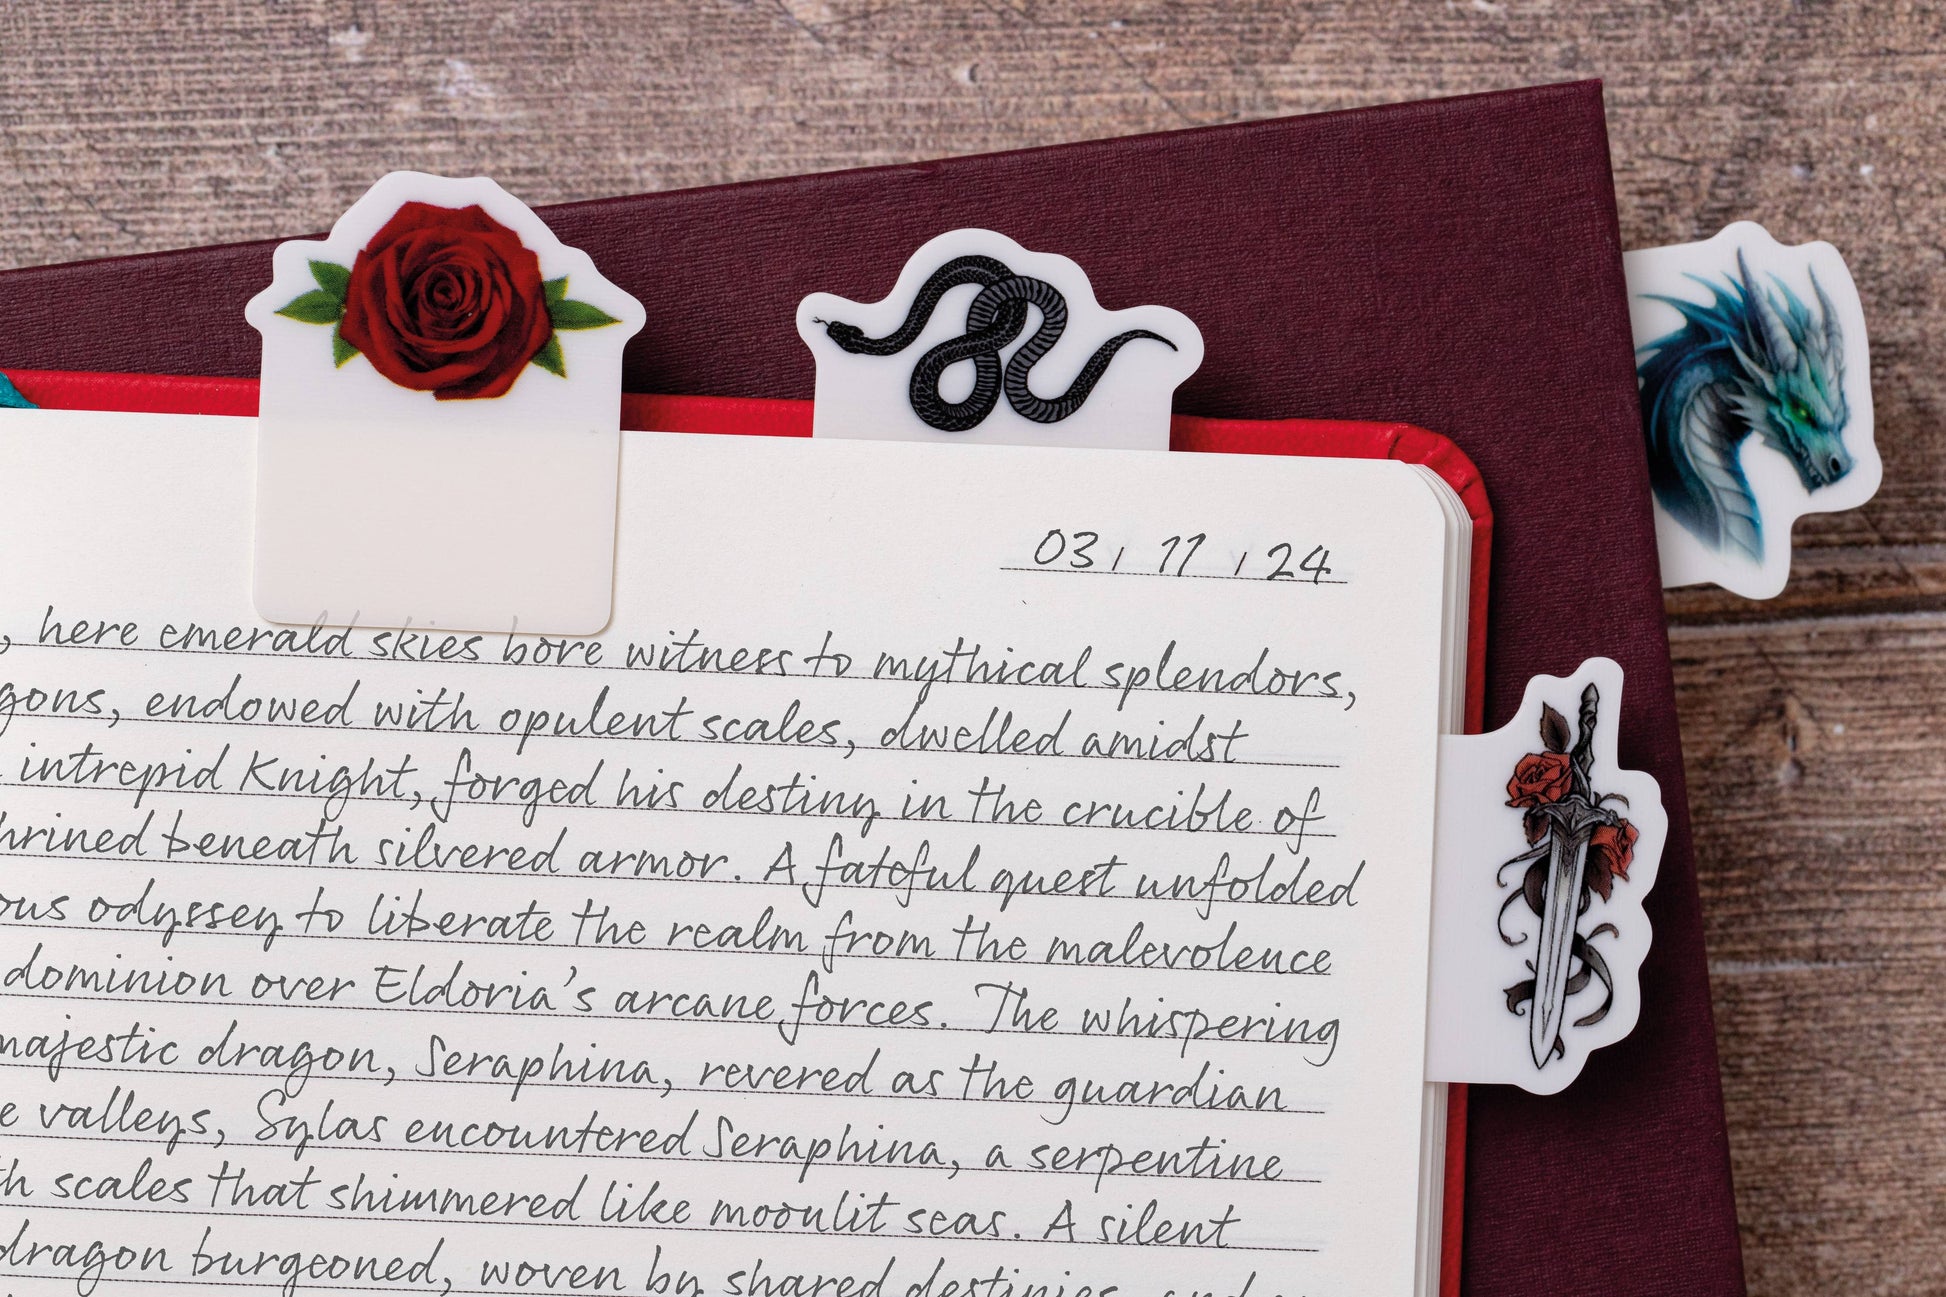 03 / 11 / 24
, here emerald skies bore witness to mythical splendors,
gons, endowed with opulent scales, dwelled amidst
intrepid Knight, forged his destiny in the crucible of
hrined beneath silvered armor. A fateful quest unfolded
ous odyssey to liberate the realm from the malevolence
dominion over Eldoria's arcane forces. The whispering
majestic dragon, Seraphina, revered as the guardian
e valleys, Sylas encountered Seraphina, a serpentine
th scales that shimmered like moonlit seas. A silent
dragon burgeoned, woven by shared destinies, and